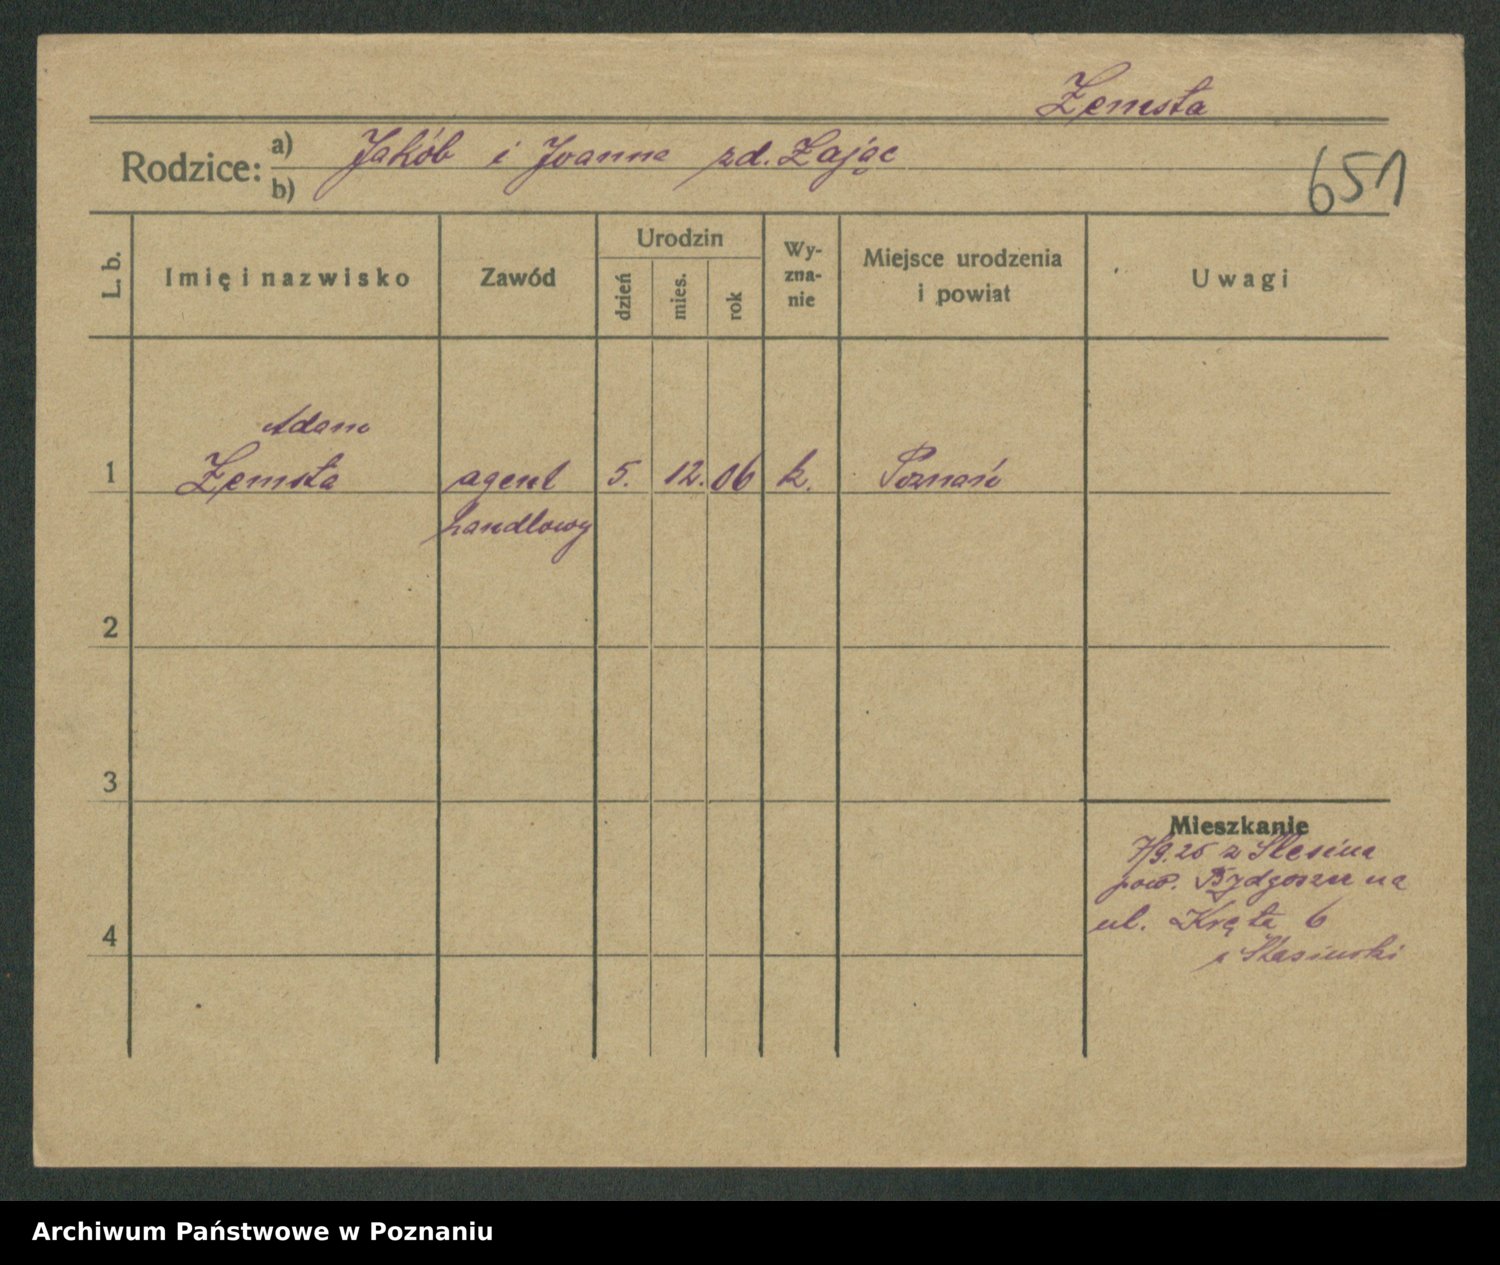 Zemsta
Rodzice: a) Jakób i Joanna zd. Zając
b)
651
L. b.
Imię i nazwisko
Zawód
Urodzin
dzień
mies.
rok
Wy-
zna-
nie
Miejsce urodzenia
i powiat
Uwagi
Adam
1 Zemsta agent 5. 12. 06 k. Poznań
handlowy
2
3
Mieszkanie
7/9.25 z Slesina
pow. Bydgoszcz na
ul. Kręta 6
4
Stasiński
Archiwum Państwowe w Poznaniu